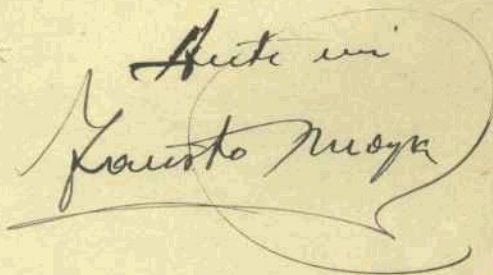 Ante mi
Fausto Moya